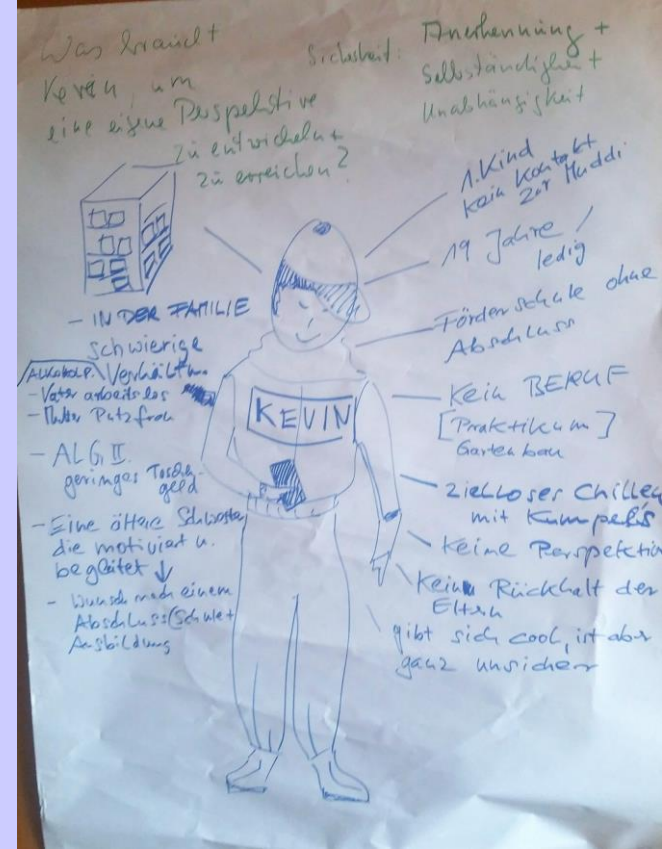 Was braucht
Kevin, um
eine eigene Perspektive
zu entwickeln +
zu erreichen?
Sicherheit: Anerkennung +
Selbständigkeit
Unabhängigkeit
1. Kind
kein Kontakt
zur Muddi
19 Jahre /
ledig
Förderschule ohne
Abschluss
Kein BERUF
[Praktikum]
Gartenbau
Zielloser Chillen
mit Kumpels
Keine Perspektive
Kein Rückhalt der
Eltern
gibt sich cool, ist aber
ganz unsicher
KEVIN
- IN DER FAMILIE
schwierige
ALKOHOLP. Verhältn.
- Vater arbeitslos
- Mutter Putzfrau
- ALG II
geringes Taschen-
geld
- Eine ältere Schwester
die motiviert u.
begleitet ↓
- Wunsch nach einem
Abschluss (Schule +
Ausbildung